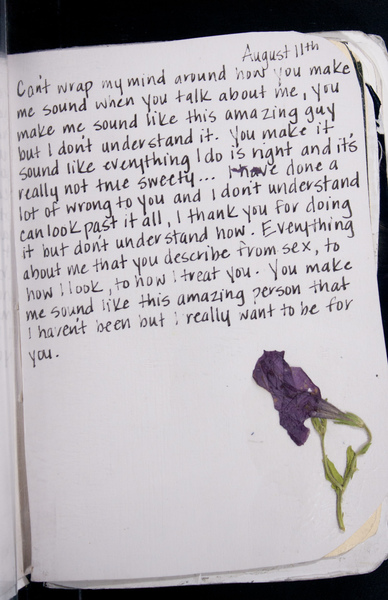 August 11th
Can't wrap my mind around how you make
me sound when you talk about me, you
make me sound like this amazing guy
but I don't understand it. You make it
sound like everything I do is right and it's
really not true sweety... I have done a
lot of wrong to you and I don't understand
can look past it all, I thank you for doing
it but don't understand how. Everything
about me that you describe from sex, to
how I look, to how I treat you. You make
me sound like this amazing person that
I haven't been but I really want to be for
you.